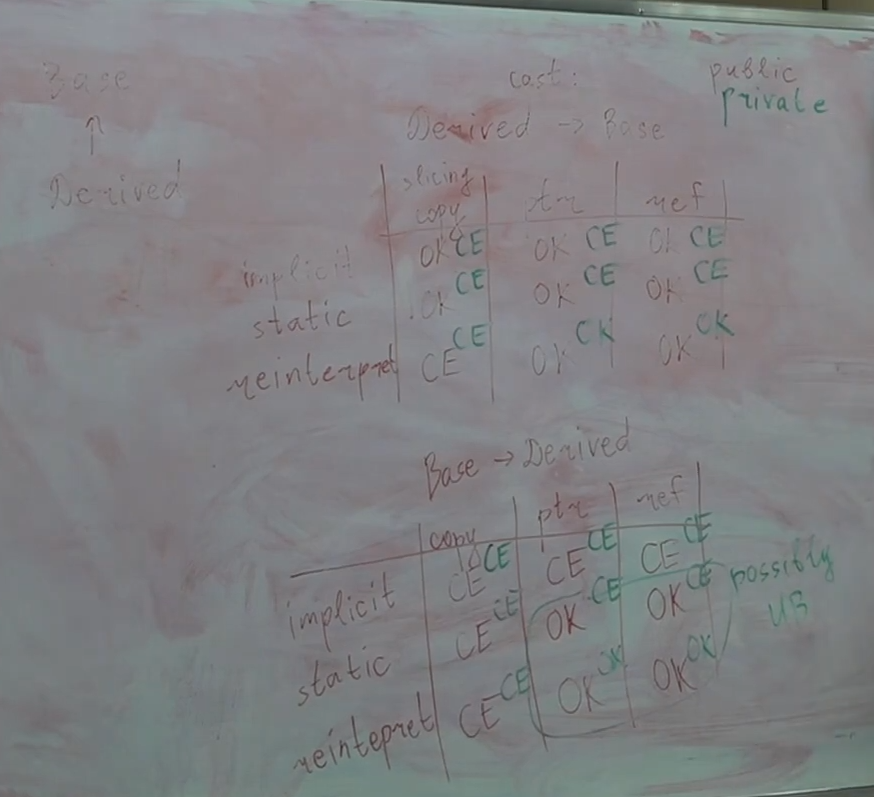 Base
↑
Derived
cast:
public
private
Derived → Base
slicing copy ptr ref
implicit OK CE OK CE OK CE
static OK CE OK CE OK CE
reinterpret CE CE OK OK OK OK
Base → Derived
copy ptr ref
implicit CE CE CE CE CE CE
static CE CE OK CE OK CE
reintepret CE CE OK OK OK OK
possibly
UB